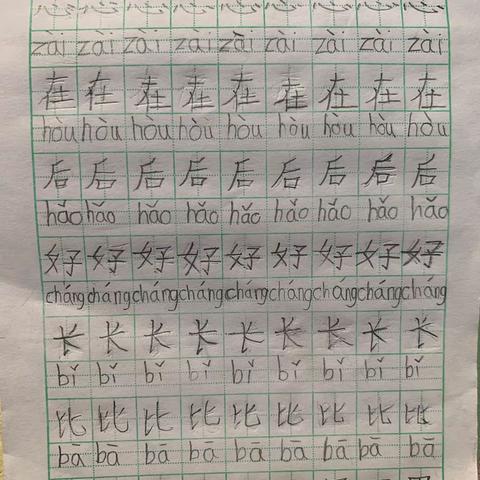 zài zài zài zài zài zài zài zài zài
在 在 在 在 在 在 在 在 在
hòu hòu hòu hòu hòu hòu hòu hòu hòu
后 后 后 后 后 后 后 后 后
hǎo hǎo hǎo hǎo hǎo hǎo hǎo hǎo hǎo
好 好 好 好 好 好 好 好 好
cháng cháng cháng cháng cháng cháng cháng cháng cháng
长 长 长 长 长 长 长 长 长
bǐ bǐ bǐ bǐ bǐ bǐ bǐ bǐ bǐ
比 比 比 比 比 比 比 比 比
bā bā bā bā bā bā bā bā bā